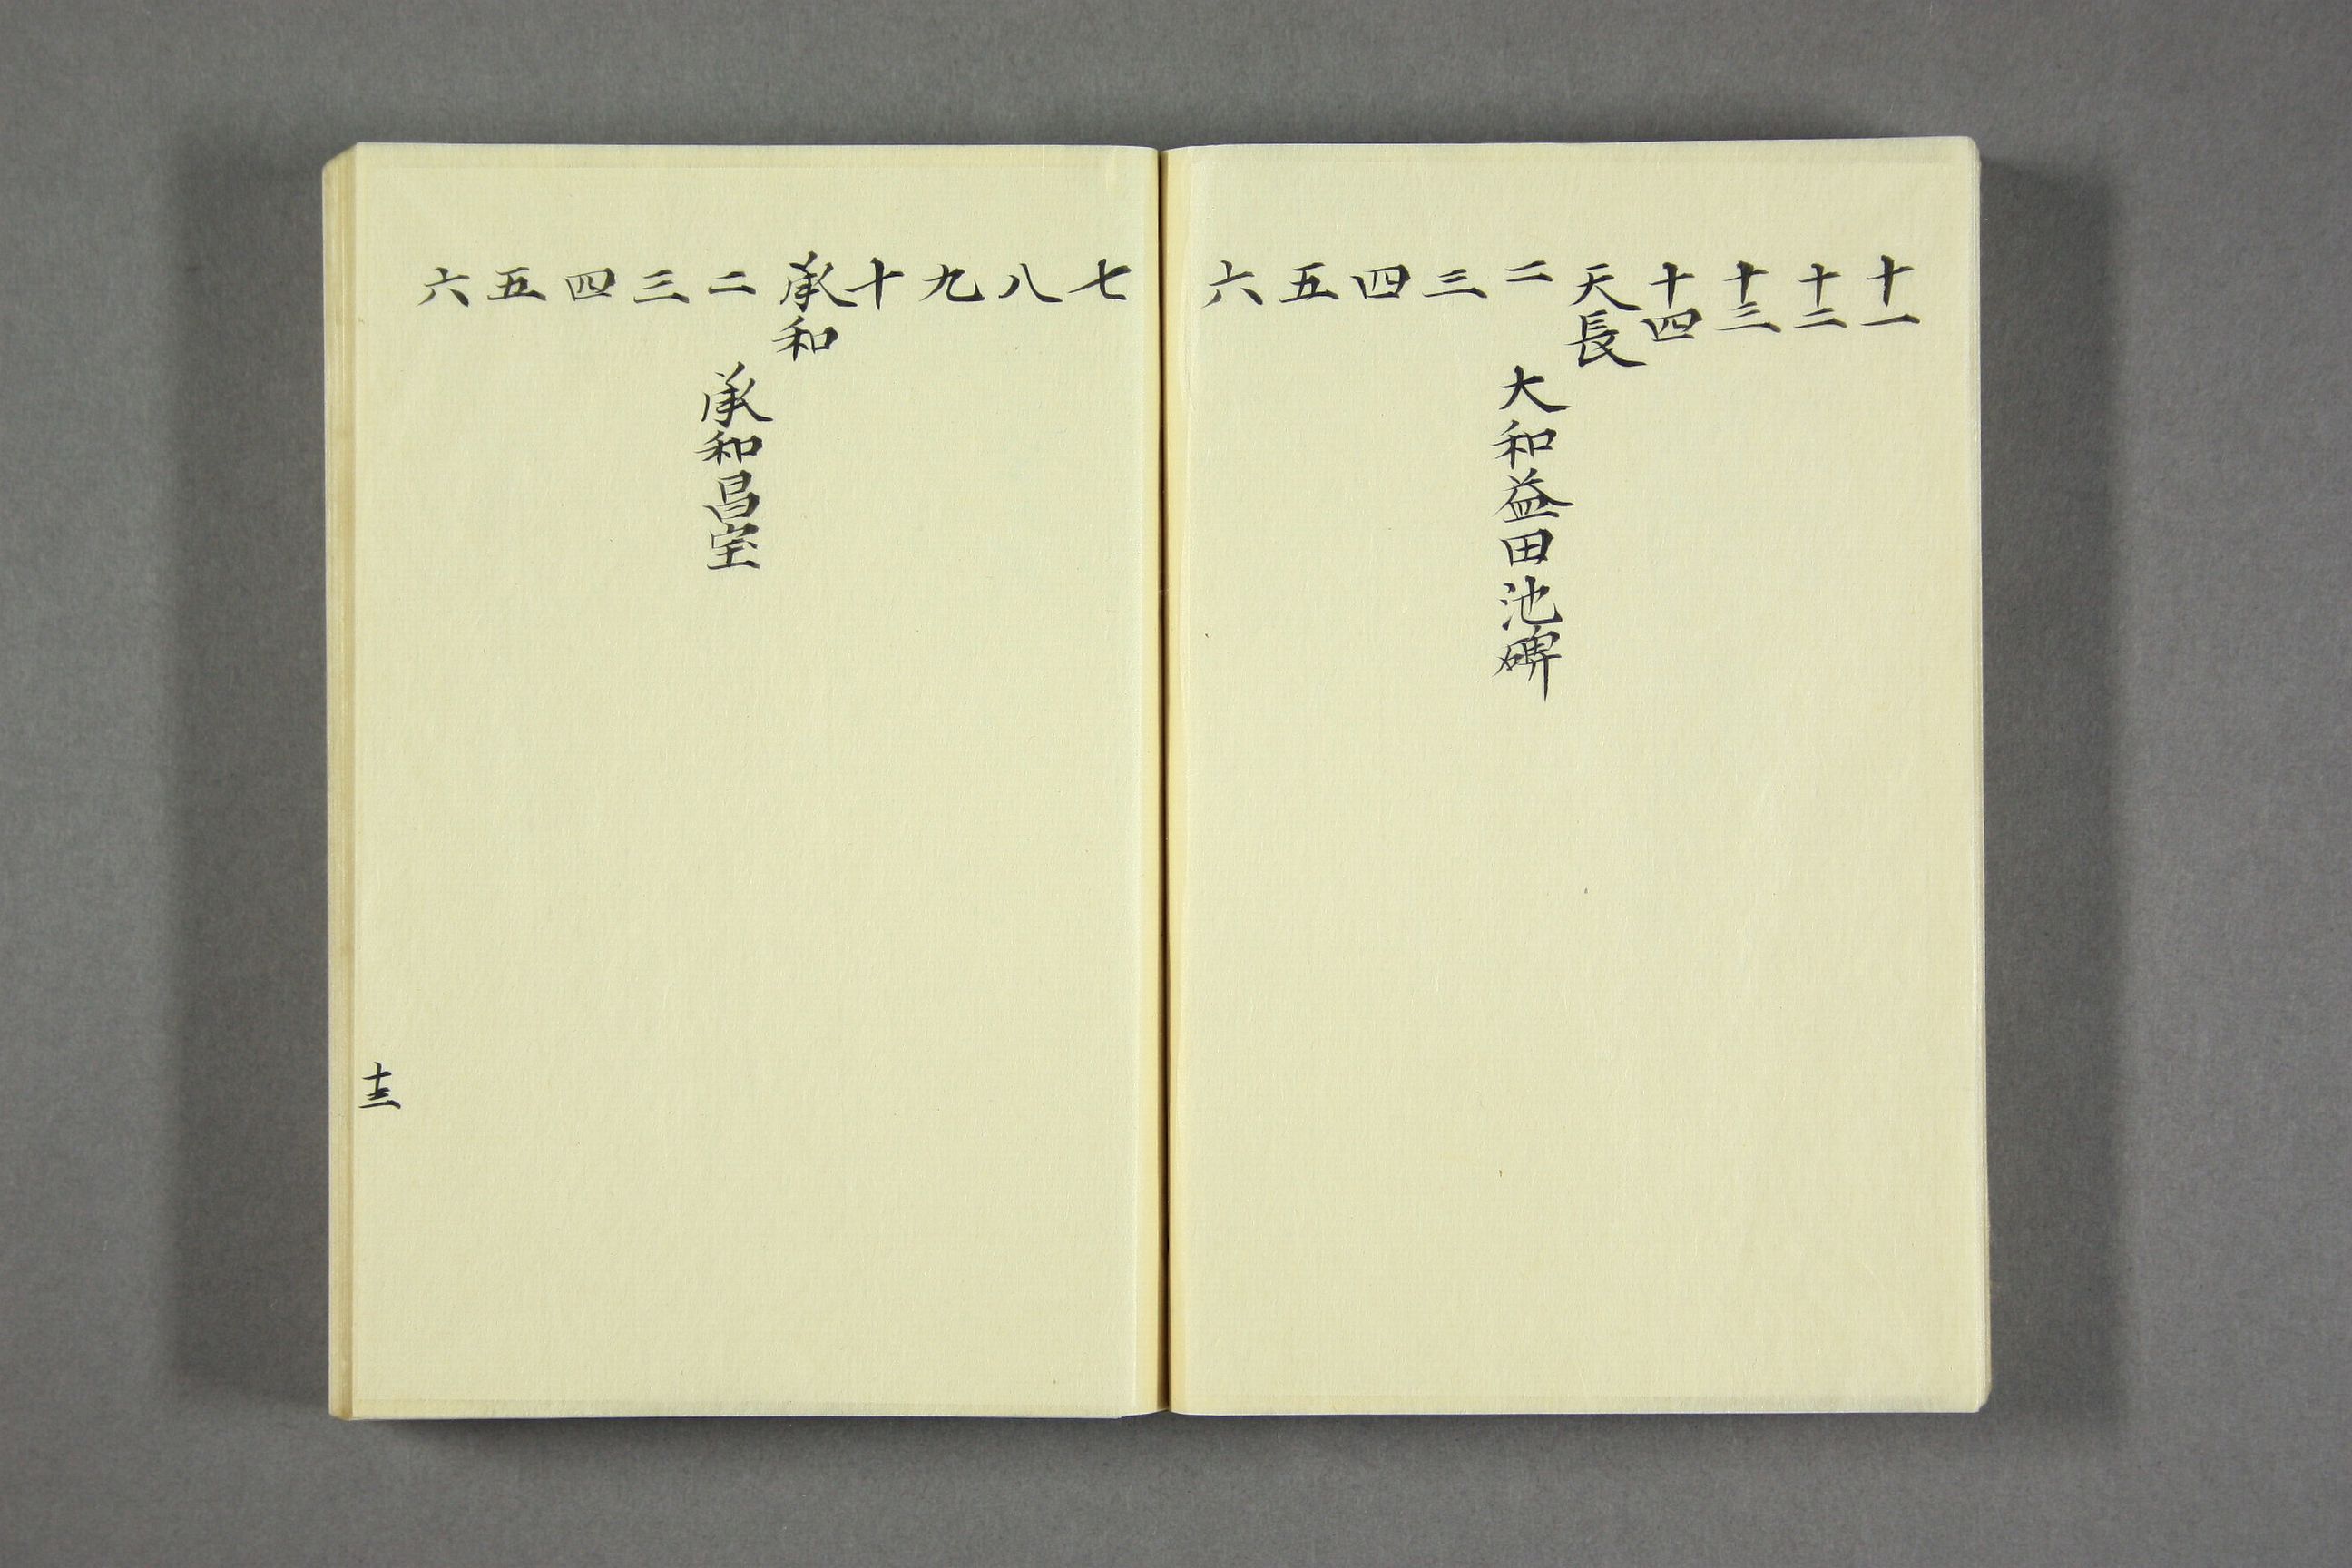 十一
十二
十三
十四
天長
二 大和益田池碑
三
四
五
六
七
八
九
十
承和
二 承和昌宝
三
四
五
六
十三